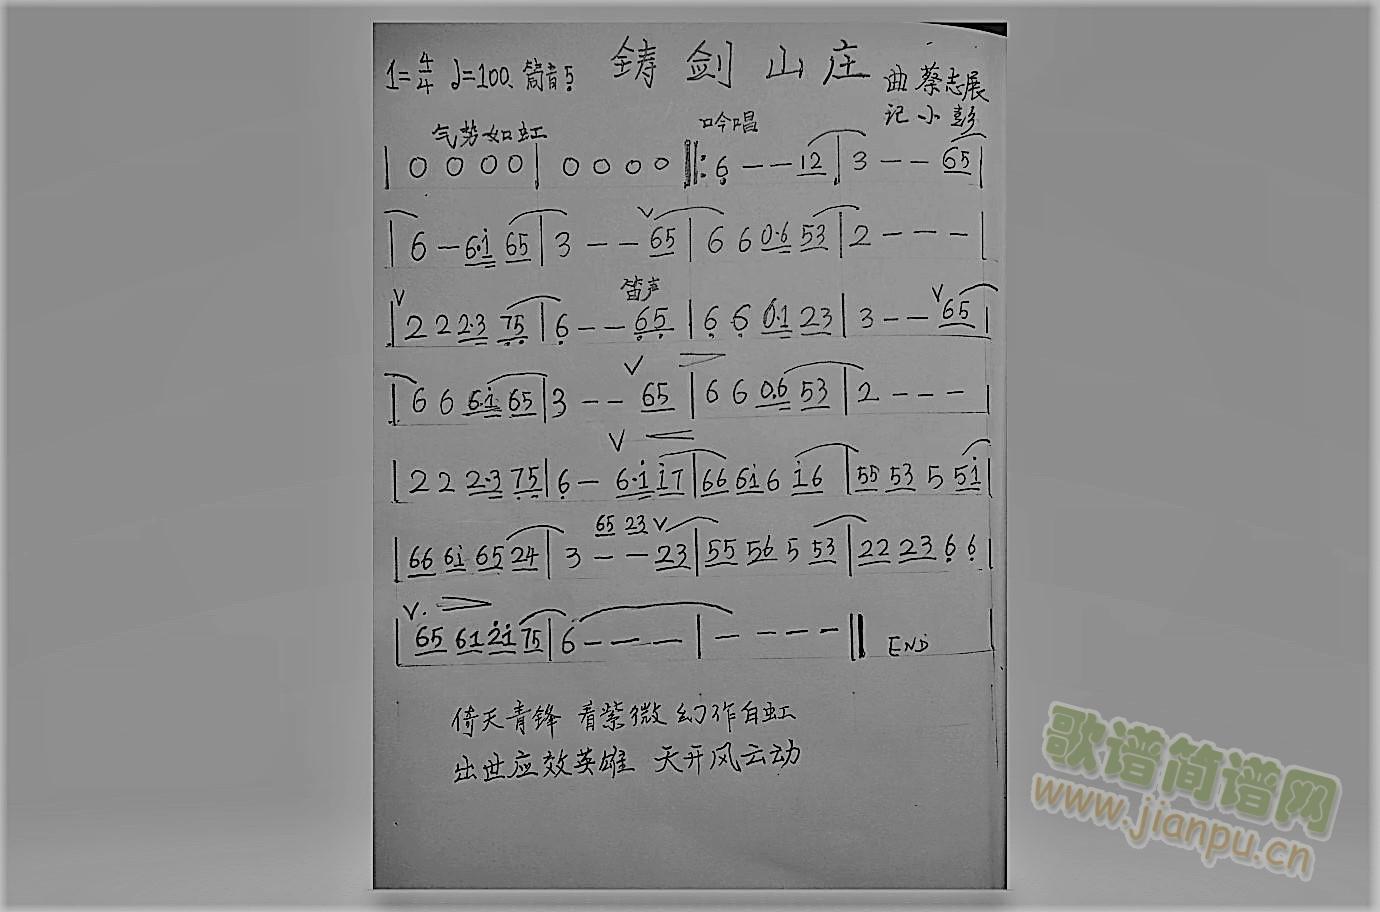 1=4/4 ♩=100、筒音5̣ 铸剑山庄 曲 蔡志展
记 小彭
气势如虹 吟唱
| 0 0 0 0 | 0 0 0 0 ‖: 6̣ - - 12 | 3 - - 65 |
| 6 - 6·i 65 | 3 - - 65 | 6 6 0·6 53 | 2 - - - |
笛声
| 2 2 2·3 7̣5̣ | 6̣ - - 6̣5̣ | 6̣ 6̣ 0·1 23 | 3 - - 65 |
| 6 6 6·i 65 | 3 - - 65 | 6 6 0·6 53 | 2 - - - |
| 2 2 2·3 7̣5̣ | 6̣ - 6·i i7 | 66 6i 6 i6 | 55 53 5 5i |
65 23
| 66 6i 65 24 | 3 - - 23 | 55 56 5 53 | 22 23 6̣ 6̣ |
| 65 61 2̇i 75 | 6 - - - | - - - - ‖ END
倚天青锋 看紫微幻作白虹
出世应效英雄 天开风云动
歌谱简谱网
www.jianpu.cn